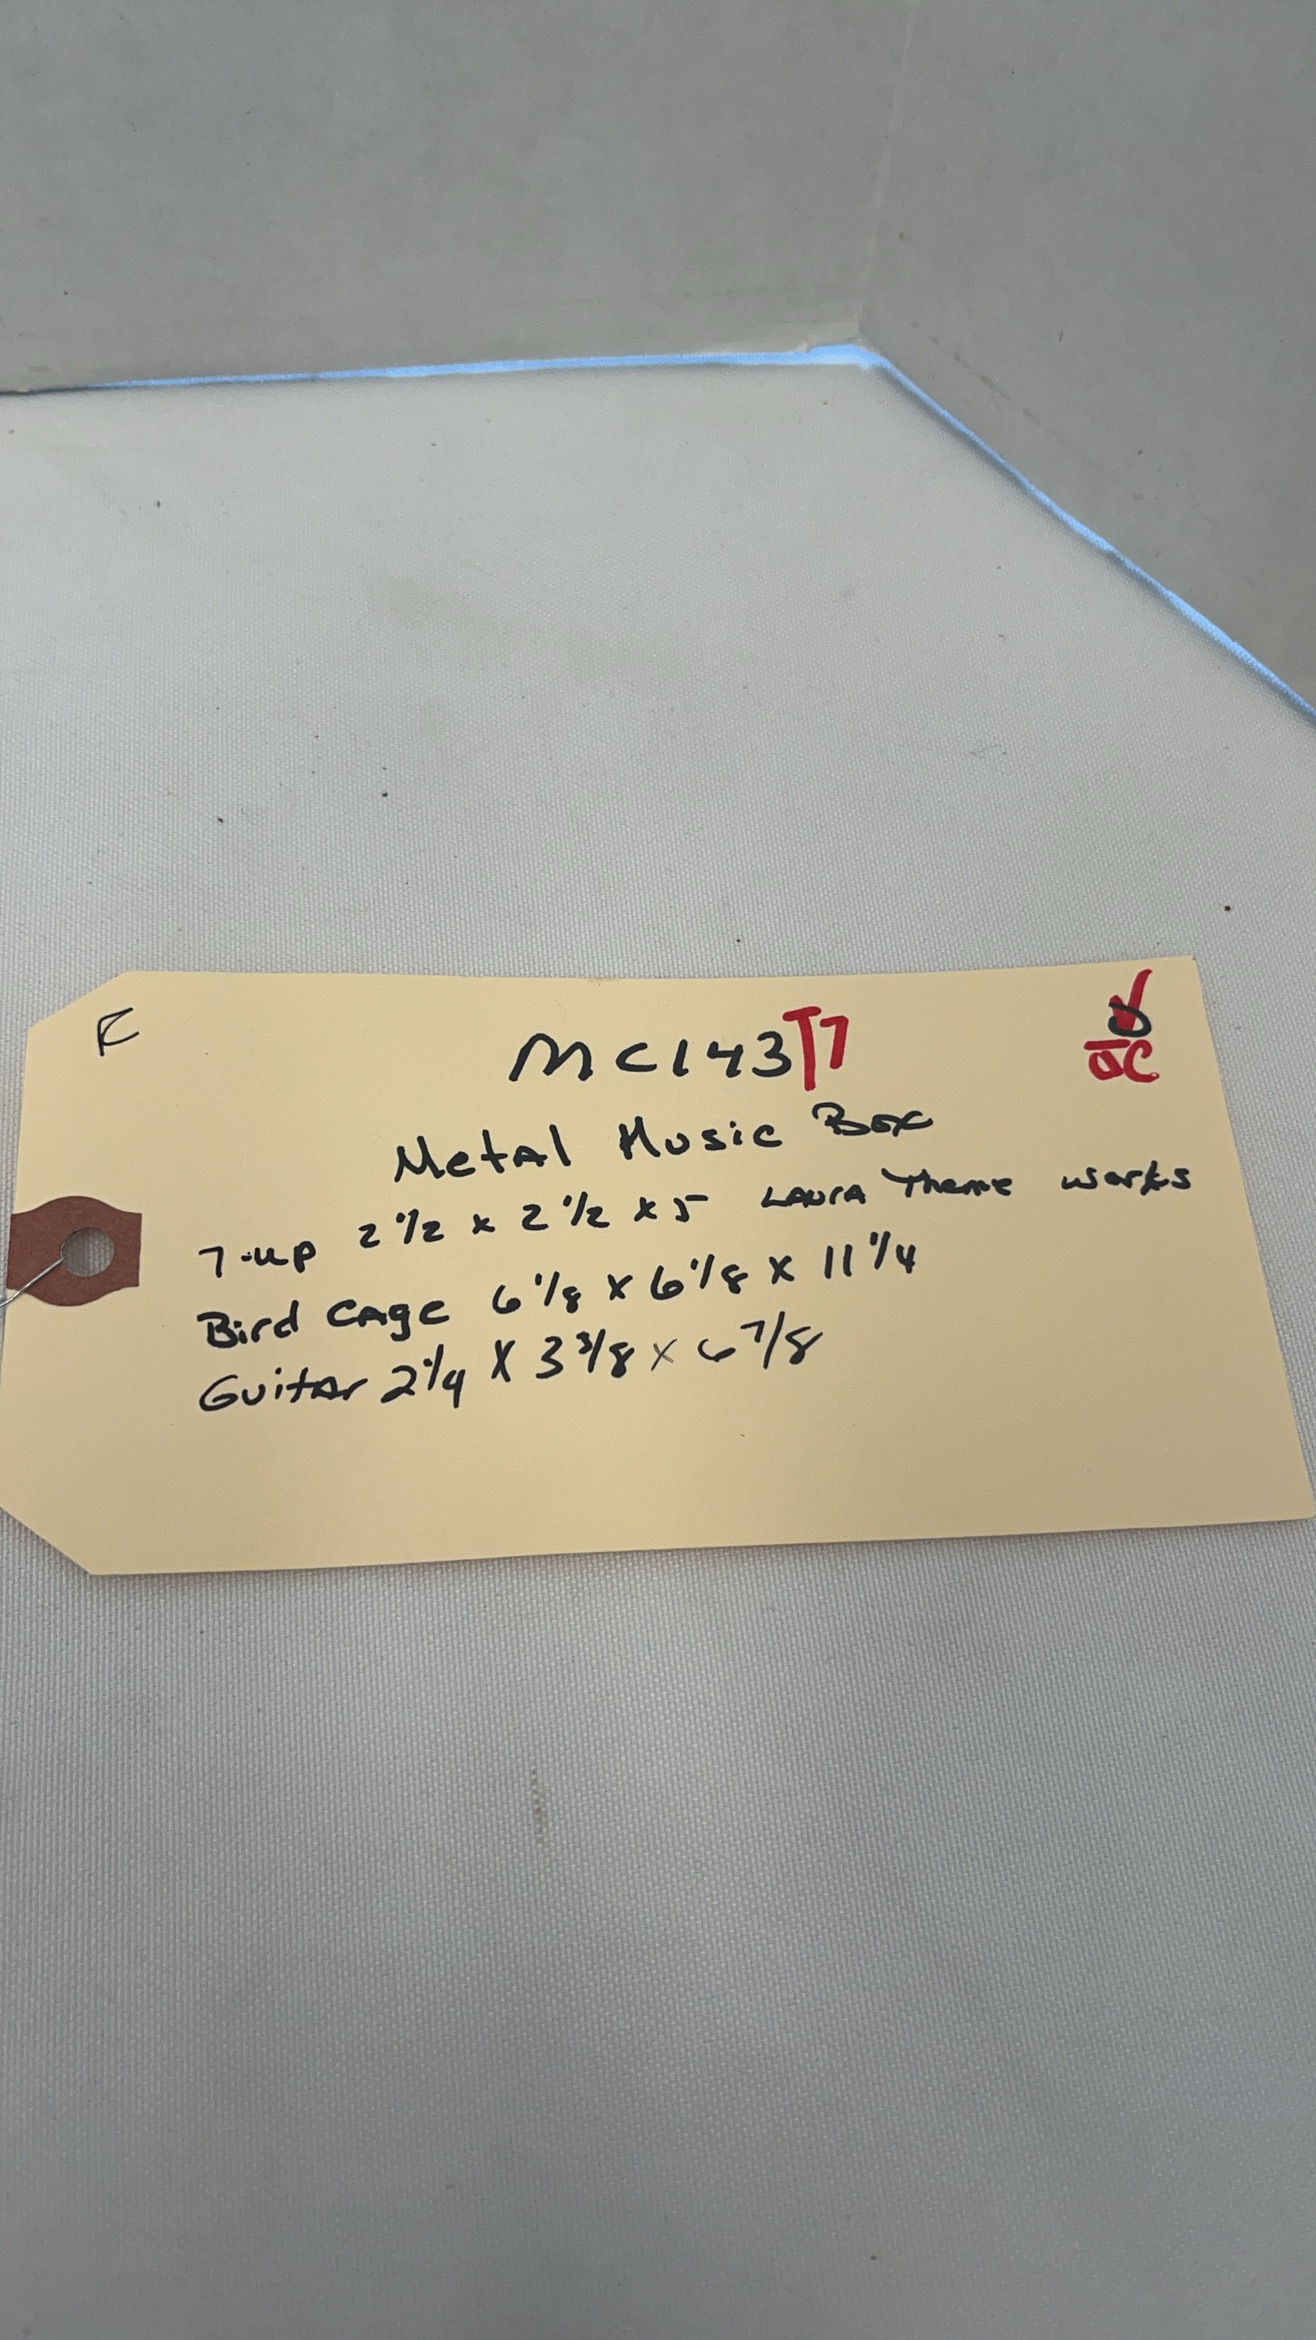 F
MC143T7
QC
Metal Music Box
7-up 2 1/2 x 2 1/2 x 5 LAURA Theme works
Bird Cage 6 1/8 x 6 1/8 x 11 1/4
Guitar 2 1/4 X 3 3/8 x 6 7/8